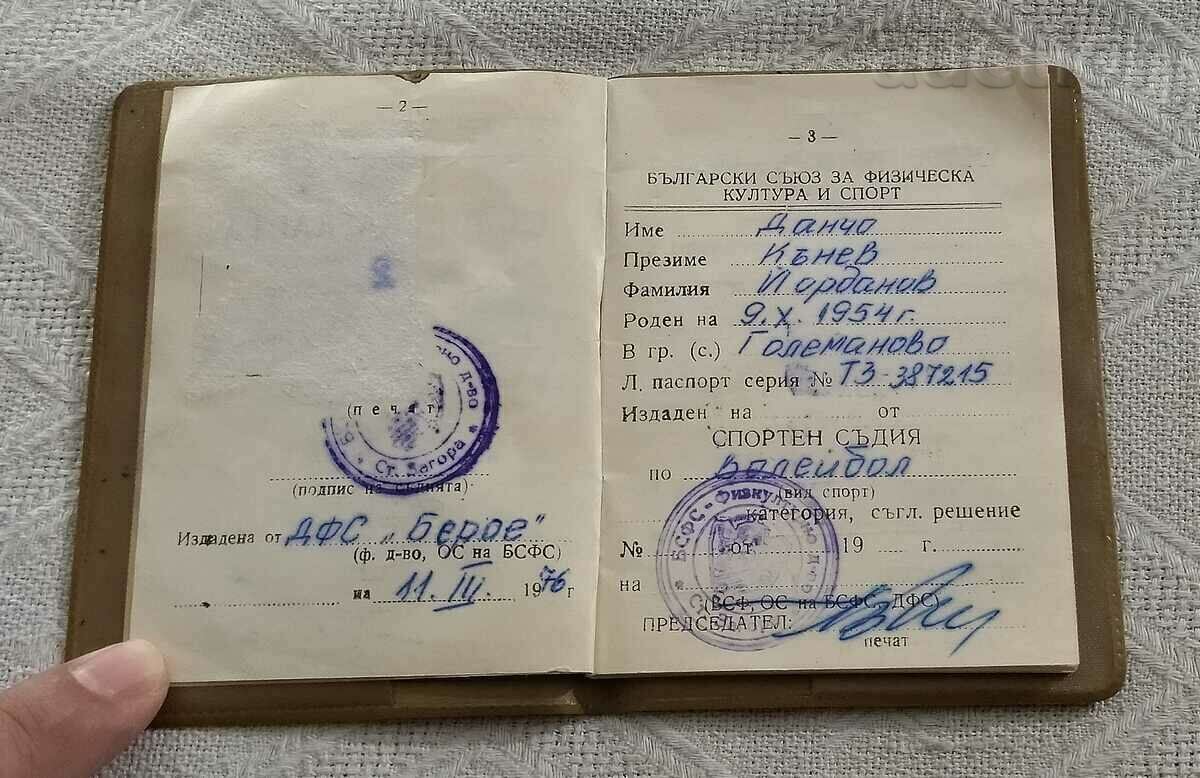 — 2 —
(печат)
Ст. Загора
(подпис на съдията)
Издадена от ДФС „Берое"
(ф. д-во, ОС на БСФС)
на 11. III. 1976 г
— 3 —
БЪЛГАРСКИ СЪЮЗ ЗА ФИЗИЧЕСКА
КУЛТУРА И СПОРТ
Име Данчо
Презиме Кънев
Фамилия Йорданов
Роден на 9. X. 1954 г.
В гр. (с.) Големаново
Л. паспорт серия № ТЗ-387215
Издаден на от
СПОРТЕН СЪДИЯ
по Волейбол
(вид спорт)
категория, съгл. решение
№ от 19 г.
на
(ВСФ, ОС на БСФС, ДФС)
ПРЕДСЕДАТЕЛ:
печат
БСФС - Физкултурно д-во